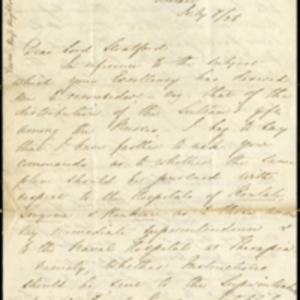 July 7/56
Dear Lord Stratford
In reference to the subject
which your Excellency has desired
me to remember - viz that of the
distribution of the Sultan's gift
among the Nurses, I beg to say
that I have further to ask your
commands as to whether the same
plan should be pursued with
respect to the Hospitals of Koulali,
Smyrna & Renkioi as
my immediate Superintendence &
to the Naval Hospital at Therapia
namely whether Instructions
should be sent to the